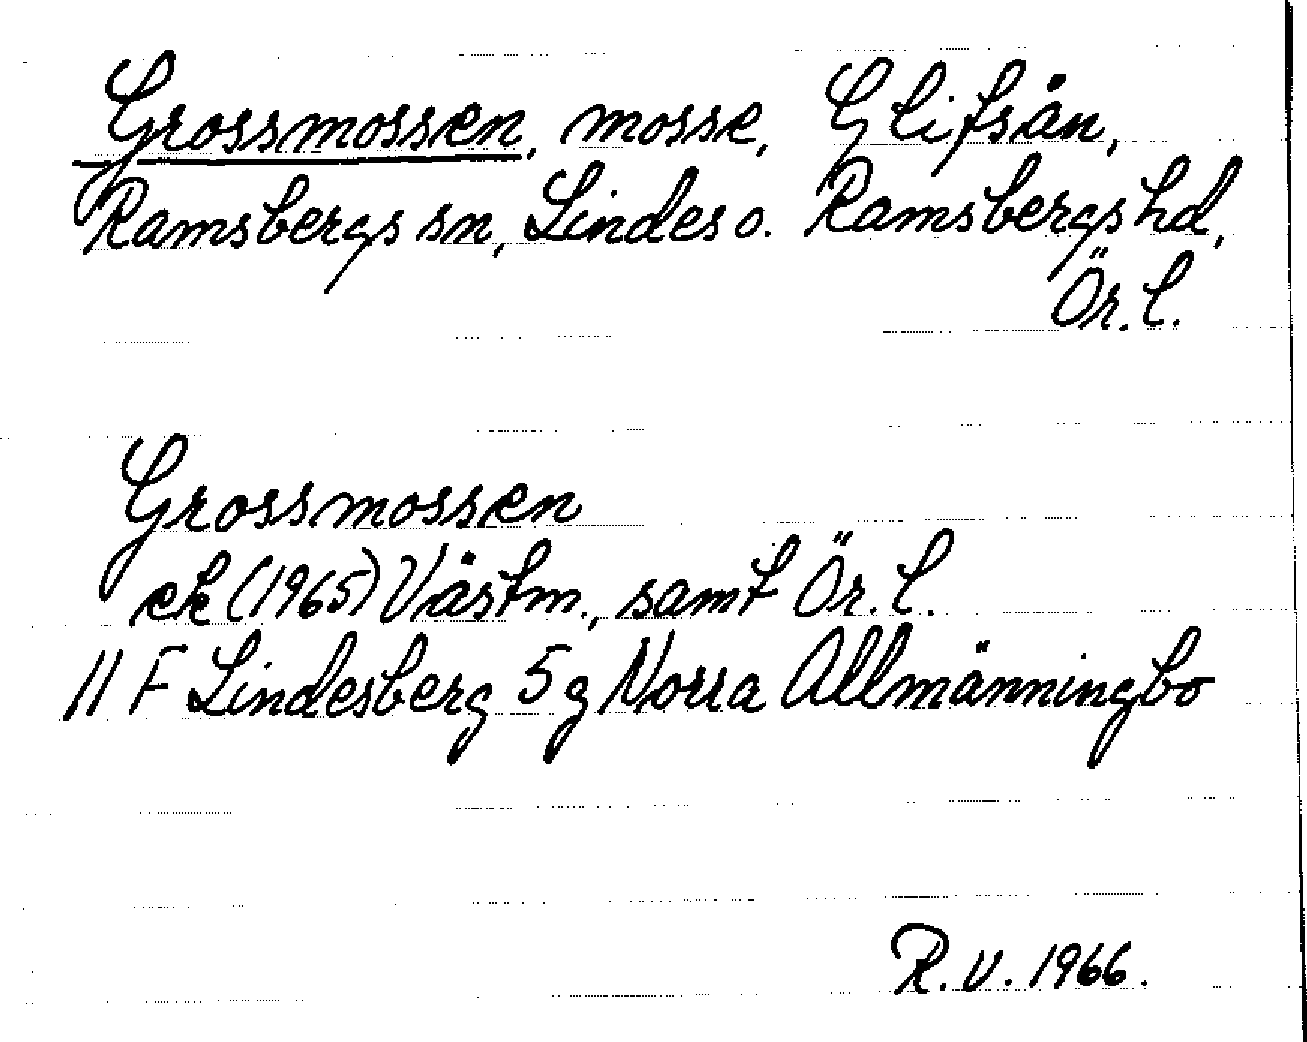 Grossmossen, mosse, Glifsån,
Ramsbergs sn, Lindes o. Ramsbergs hd,
Ör. l.
Grossmossen
ek (1965) Västm., samt Ör. l.
11 F Lindesberg 5 g Norra Allmänningbo
R. V. 1966.